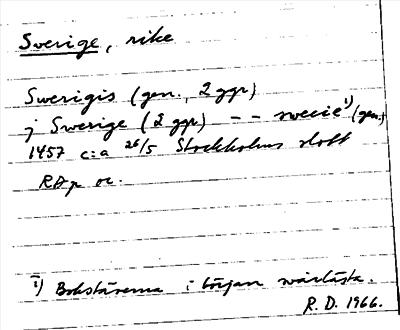 Sverige, rike
Swerigis (gen., 2 ggr)
j Swerige (2 ggr) -- swecie 1) (gen.)
1457 c:a 26/5 Stockholms slott
RAp or.
1) Bokstäverna i början svårlästa.
R. D. 1966.